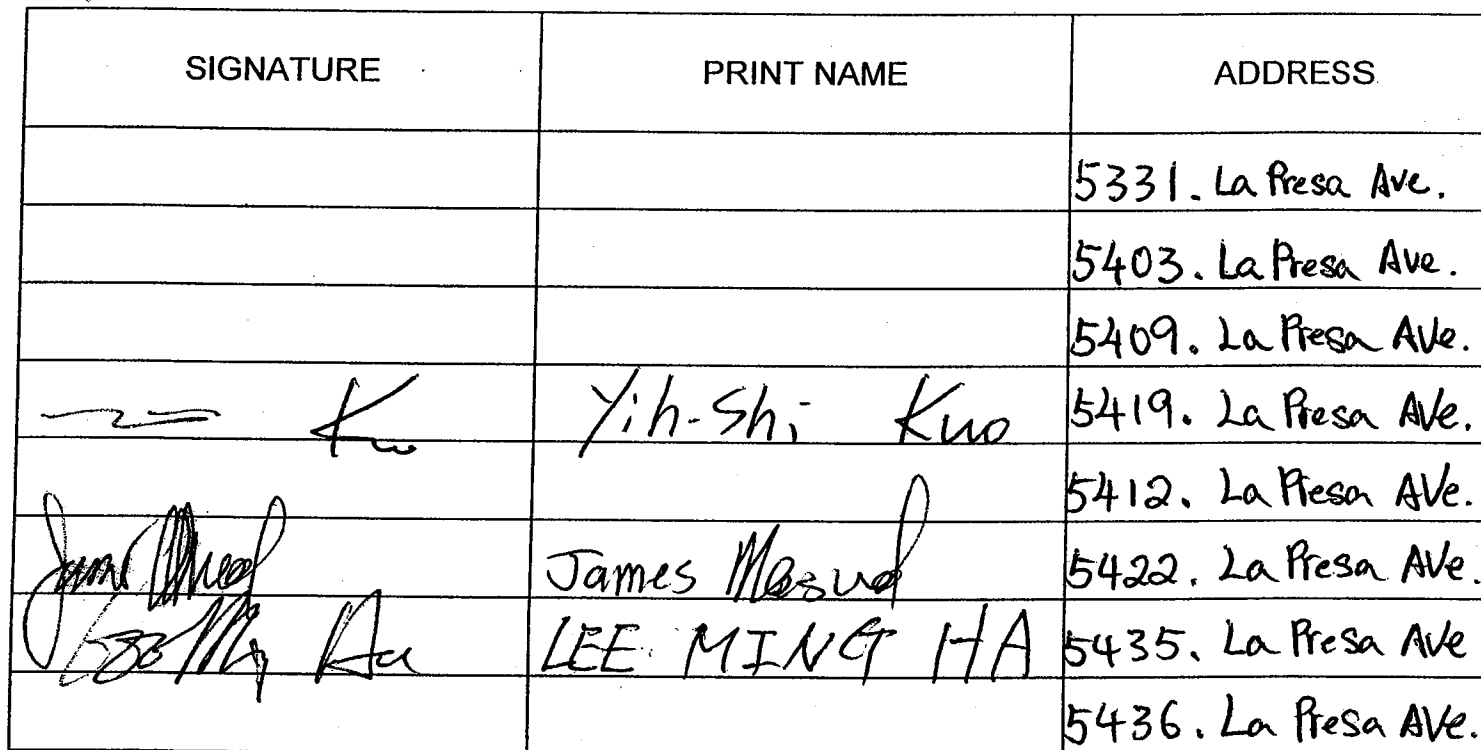 SIGNATURE PRINT NAME ADDRESS
5331. La Presa Ave.
5403. La Presa Ave.
5409. La Presa Ave.
Yih-Shi Kuo 5419. La Presa Ave.
5412. La Presa Ave.
James 5422. La Presa Ave.
LEE MING HA 5435. La Presa Ave
5436. La Presa Ave.